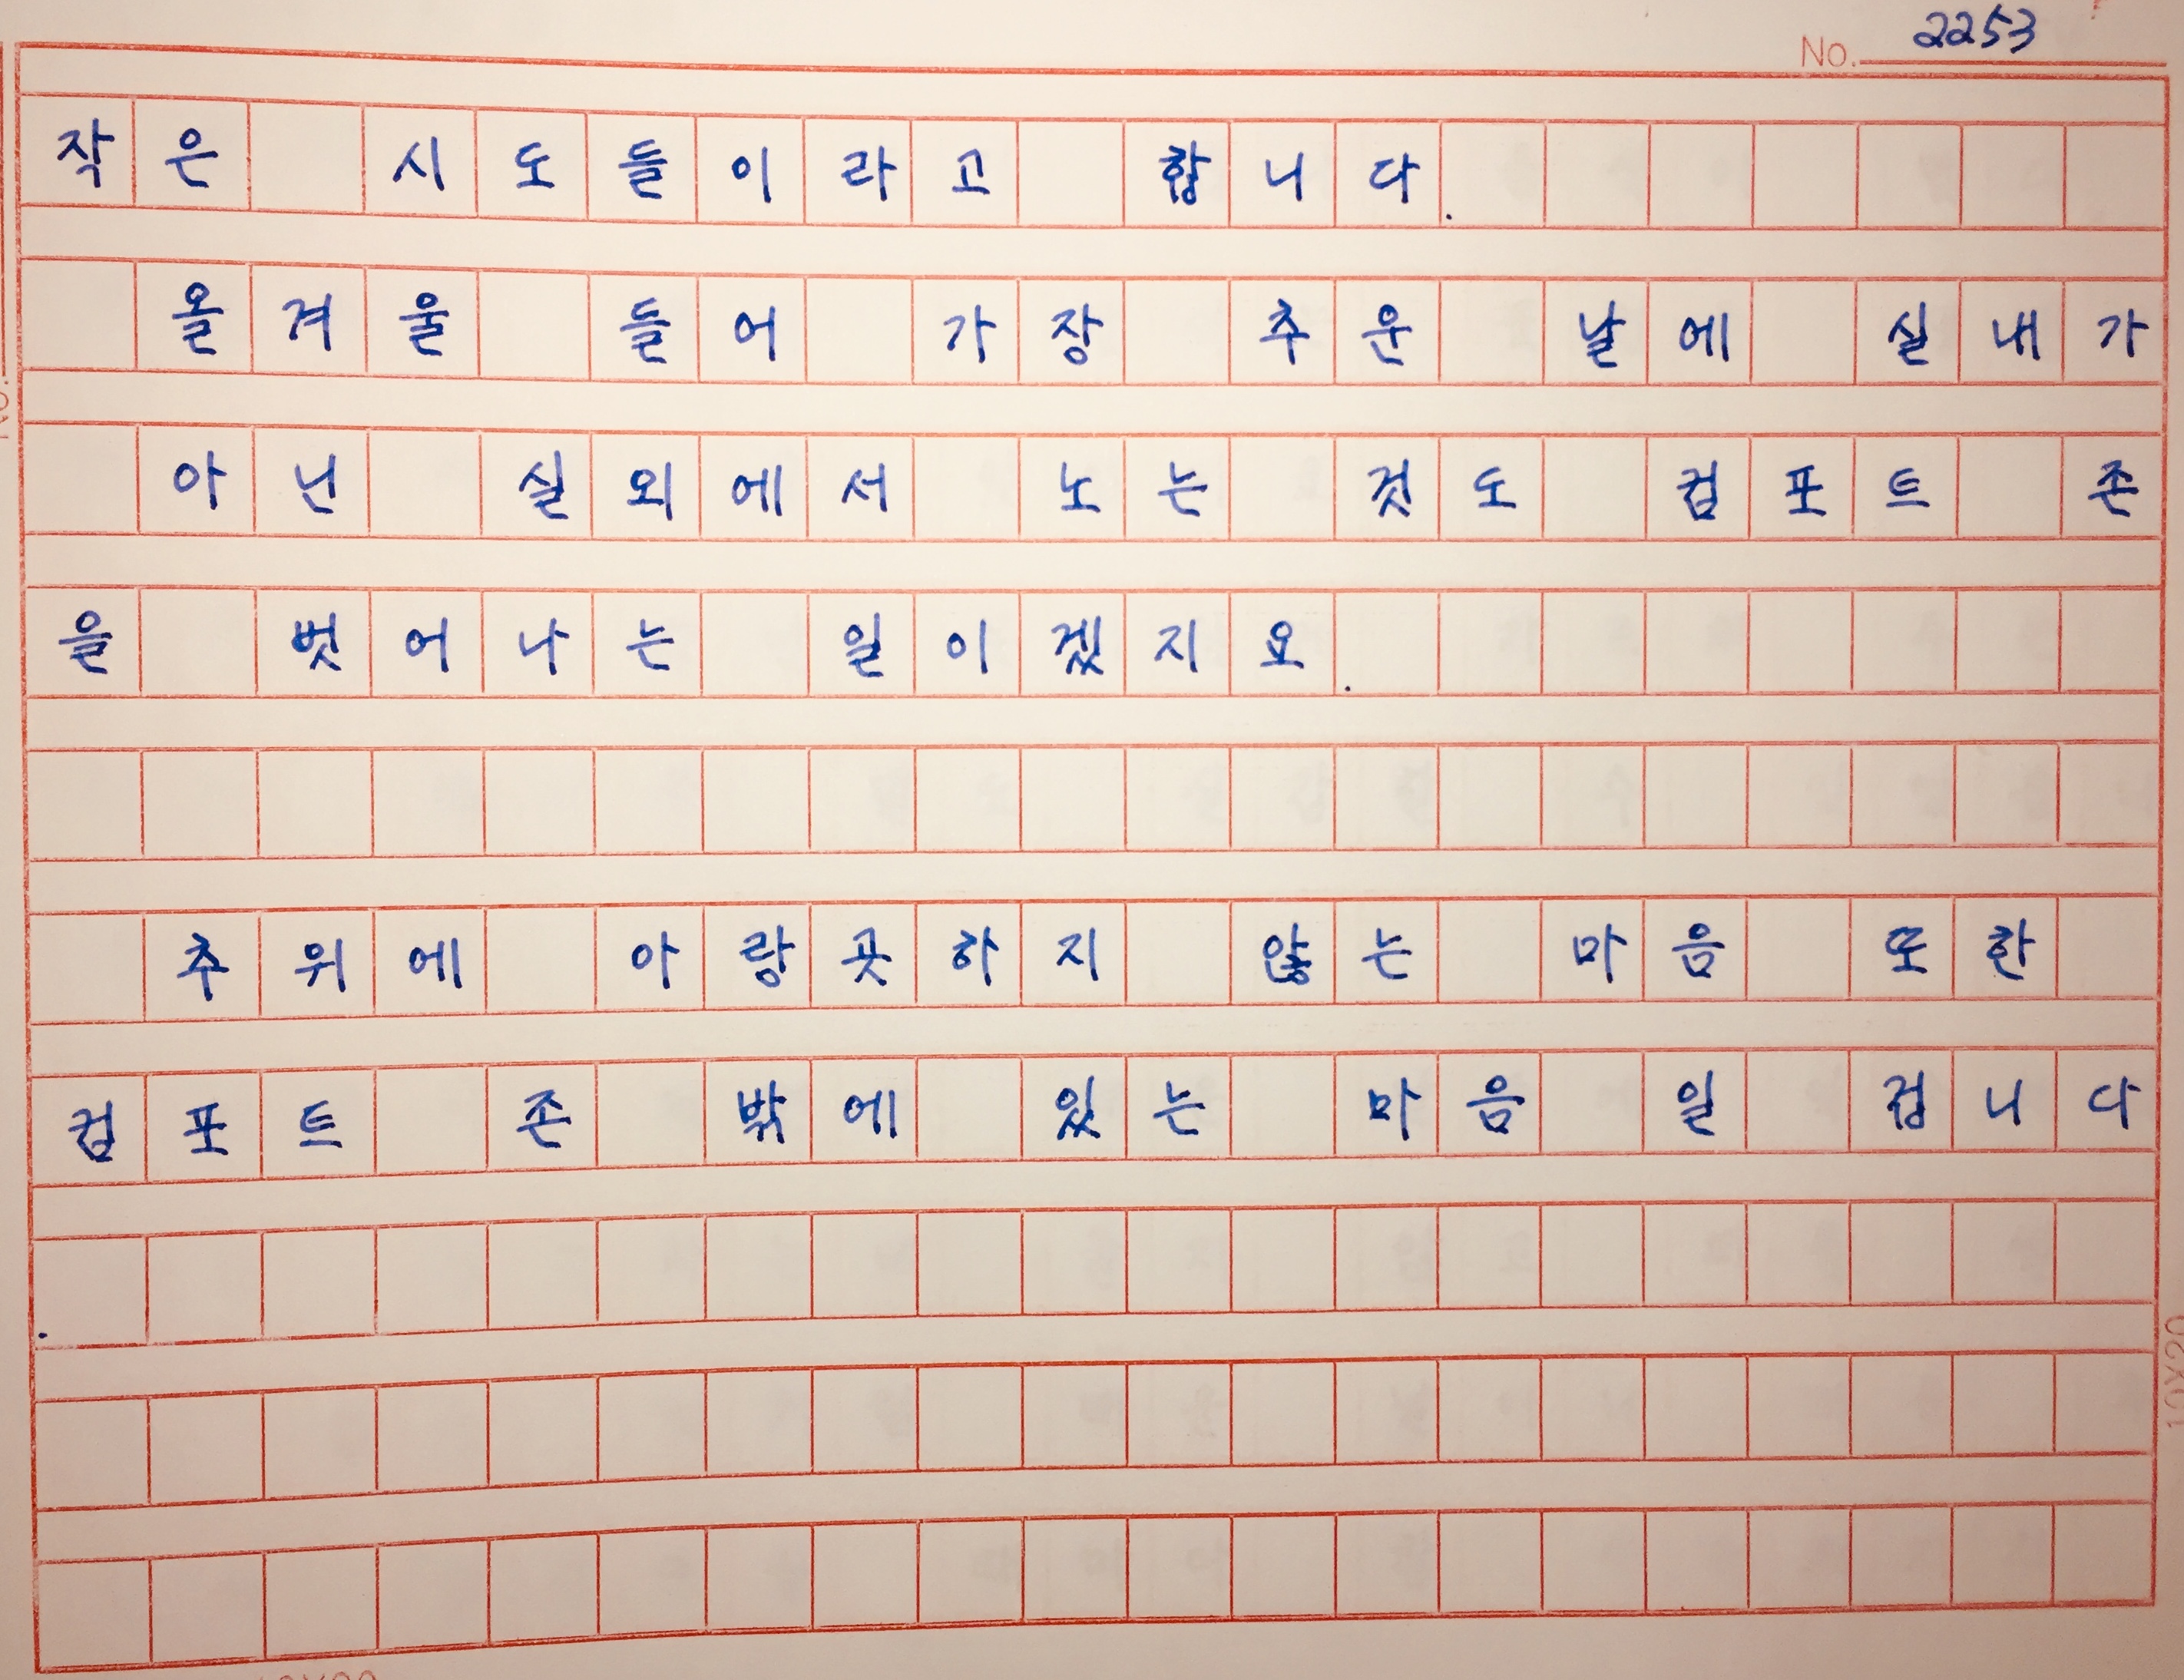 No. 2253
작은 시도들이라고 합니다.
올겨울 들어 가장 추운 날에 실내가
아닌 실외에서 노는 것도 컴포트 존
을 벗어나는 일이겠지요.
추위에 아랑곳하지 않는 마음 또한
컴포트 존 밖에 있는 마음 일 겁니다
.
10X20